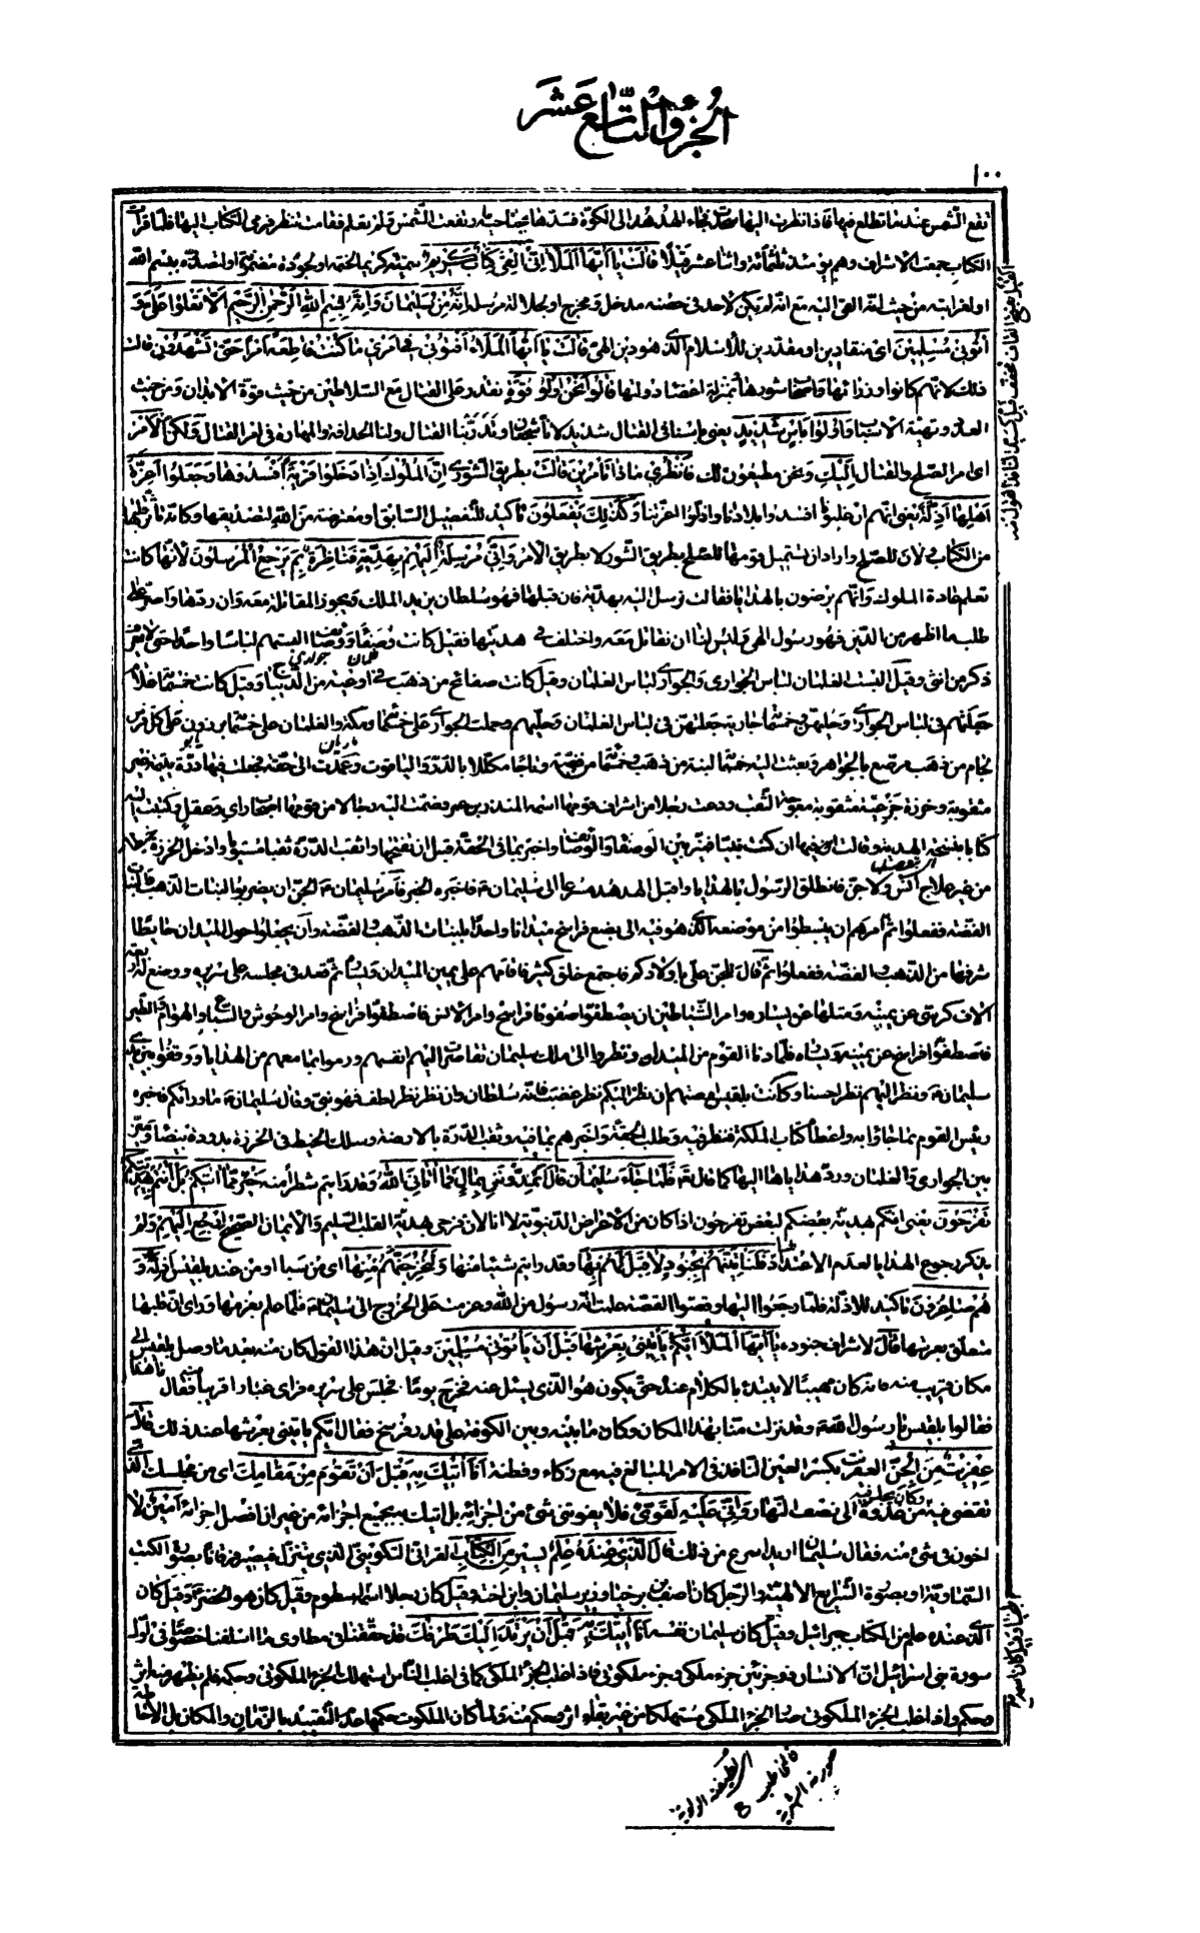 الجزؤ التاسع عشر
١٠٠
تقع الشمس عند ما تطلع فيها فاذا نظرت اليها سجدت فجاء الهدهد الى الكوة فسدها بجناحيه وارتفعت الشمس ولم تعلم فقامت تنظر فرمى الكتاب اليها فلما قرأت
الكتاب جمعت الاشراف وهم يومئذ ثلثمأة واثنا عشر قيلا قالت يا ايها الملأ انى القى الى كتاب كريم سمته كريما لختمه او لجودة مضمونه او لصدره ببسم الله
او لغرابته من حيث انه القى اليه مع انه لم يكن لاحد فى حصنه مدخل ومخرج او لجلالة مرسله انه من سليمان وانه بسم الله الرحمن الرحيم الا تعلوا على و
أتونى مسلمين اى منقادين او مقتدين للاسلام الذى هو دين الهى قالت يا ايها الملأ افتونى فى امرى ما كنت قاطعة امرا حتى تشهدون قالت
ذلك لانهم كانوا وزرائها واصحاب شورها بمنزلة اعضاد دولتها قالوا نحن اولو قوة نقدر على القتال مع السلاطين من حيث قوة الابدان ومن حيث
العدد وتهيئة الاسباب واولوا باس شديد يعنى باسنا فى القتال شديد لانا شجعان وتدربنا القتال ولنا الحذاقة والمهارة فى امر القتال ولكن الامر
اى امر الصلح والقتال اليك ونحن مطيعون لك فانظرى ماذا تامرين قالت بطريق الشورى ان الملوك اذا دخلوا قرية افسدوها وجعلوا اعزة
اهلها اذلة يعنى انهم ان غلبوا افسدوا بلادنا واذلوا اعزتنا وكذلك يفعلون تأكيد للتفصيل السابق او معترضة من الله لتصديقها وكانت تأثرها
من الكتاب لان للصلح وارادان تستميل قومها للصلح بطريق الشور لا بطريق الامر وانى مرسلة اليهم بهدية فناظرة بم يرجع المرسلون لانها كانت
تعلم عادة الملوك وانهم يرضون بالهدايا فقالت نرسل اليه بهدية فان قبلها فهو سلطان يريد الملك ويجوز المقاتلة معه وان ردها واصر على
طلب ما اظهر من الدين فهو رسول الهى وليس لنا ان نقاتل معه واختلف فى هديتها فقيل كانت وصفاء ووصائف البستهم لباسا واحدا حتى لا يعرف
ذكر من انثى وقيل البست الغلمان لباس الجوارى والجوارى لباس الغلمان وقيل كانت صفائح من ذهب فى اوعية من الديباج وقيل كانت خمسمأة غلام
جعلتهم فى لباس الجوارى وحليهن وخمسمأة جارية جعلتهن فى لباس الغلمان وحليهم وحملت الجوارى على خمسمأة رمكة والغلمان على خمسمأة برذون على كل فرس
لجام من ذهب مرصع بالجواهر وبعثت اليه خمسمأة لبنة من ذهب وخمسمأة من فضة وتاجا مكللا بالدر والياقوت وعمدت الى حقة فجعلت فيها درة يتيمة غير
مثقوبة وخرزة جزعية مثقوبة معوجة الثقب ودعت رجلا من اشراف قومها اسمه المنذر بن عمرو وضمت اليه رجالا من قومها اصحاب راى وعقل وكتبت اليه
كتابا بنسخة الهدية وقالت فيها ان كنت نبيا فميز بين الوصفاء والوصائف واخبر بما فى الحقة قبل ان تفتحها واثقب الدرة ثقبا مستويا وادخل الخرزة خيطا
من غير علاج انس ولا جن فانطلق الرسول بالهدايا واقبل الهدهد مسرعا الى سليمان فاخبره الخبر فامر سليمان الجن ان يضربوا لبنات الذهب ولبنات
الفضة ففعلوا ثم امرهم ان يبسطوا من موضعه الذى هو فيه الى بضع فراسخ ميدانا واحدا بلبنات الذهب والفضة وان يجعلوا حول الميدان حايطا
شرفها من الذهب والفضة ففعلوا ثم قال للجن على باولادكم فاجتمع خلق كثير فاقامهم على يمين الميدان ويساره ثم قعد فى مجلسه على سريره ووضع له اربعة
الاف كرسى عن يمينه ومثلها عن يساره وامر الشياطين ان يصطفوا صفوفا فراسخ وامر الانس فاصطفوا فراسخ وامر الوحوش والسباع والهوام والطير
فاصطفوا فراسخ عن يمينه ويساره فلما دنا القوم من الميدان ونظروا الى ملك سليمان تقاصرت اليهم انفسهم ورموا بما معهم من الهدايا ووقفوا بين يدى
سليمان ونظر اليهم نظرا حسنا وكانت بلقيس قالت ان نظر اليكم نظر غضب فانه سلطان وان نظر نظر لطف فهو نبى وقال سليمان ما ورائكم فاخبره
رئيس القوم بما جاؤا به واعطاه كتاب الملكة فنظر فيه وطلب الحقة واخبرهم بما فيه وثقب الدرة بالارضة وسلك الخيط فى الخرزة بدودة بيضاء وميز
بين الجوارى والغلمان ورد هداياها اليها كما قال فلما جاء سليمان قال اتمدونن بمال فما اتانى الله وقد رايتم شطرا منه خير مما اتيكم بل انتم بهديتكم
تفرحون يعنى انكم هدية بعضكم لبعض تفرحون اذا كان من الاعراض الدنيوية لا انا لان فرحى بهدية القلب السليم والايمان الصحيح ارجع اليهم ولم
يذكر رجوع الهدايا لعدم الاعتداد فلنأتينهم بجنود لا قبل لهم بها وقد رايتم شيئا منها ولنخرجنهم منها اى من سبا او من عند بلقيس اذلة و
هم صاغرون تاكيد للاذلة فلما رجعوا اليها وقصوا القصة علمت انه رسول من الله وعزمت على الخروج الى سليمان فلما علم بعزمها وراى ان قلبها
متعلق بعرشها قال لاشراف جنوده يا ايها الملأ ايكم ياتينى بعرشها قبل ان ياتونى مسلمين وقيل ان هذا القول كان منه بعد ما وصل بلقيس الى
مكان قريب منه فانه كان مهيبا لا يبتدء بالكلام عنده حتى يكون هو الذى يسئل عنه فخرج يوما فجلس على سريره فراى غبارا قريبا فقال ما هذا
فقالوا بلقيس يا رسول الله وقد نزلت منا بهذا المكان وكان ما بينه وبين الكوفة على قدر فرسخ فقال ايكم ياتينى بعرشها عند ذلك قال
عفريت من الجن العفريت بكسر العين النافذ فى الامر المبالغ فيه مع ذكاء وفطنة انا اتيك به قبل ان تقوم من مقامك اى من مجلسك الذى
تقضى فيه من غدوة الى نصف النهار وانى عليه لقوى فلا يفوتنى شئ من اجزائه بل اتيك بجميع اجزائه من غير ان افصل اجزائه امين لا
اخون فى شئ منه فقال سليمان اريد اسرع من ذلك قال الذى عنده علم يسير من الكتاب القرانى التكوينى الذى يتنزل فيصير قرانا بصورة الكتب
السماوية او بصورة الشرايع الالهية والرجل كان اصف بن برخيا وزير سليمان وابن اخته وقيل كان رجلا اسمه اسطوم وقيل كان هو الخضر وقيل كان
الذى عنده علم من الكتاب جبرائيل وقيل كان سليمان نفسه انا اتيك به قبل ان يرتد اليك طرفك قد حققنا فى مطاوى ما اسلفنا خصوصا فى اول
سورة بنى اسرائيل ان الانسان ذو جزئين جزء ملكى وجزء ملكوتى فاذا غلب الجزء الملكى كما فى اغلب الناس استهلك الجزء الملكوتى وحكمه فلم يظهر منه اثر
وحكم واذا غلب الجزء الملكوتى صار الجزء الملكى مستهلكا من غير بقاء اثر وحكم منه ولما كان الملكوت حكمها عدم التقييد بالزمان والمكان بل الاحاطة